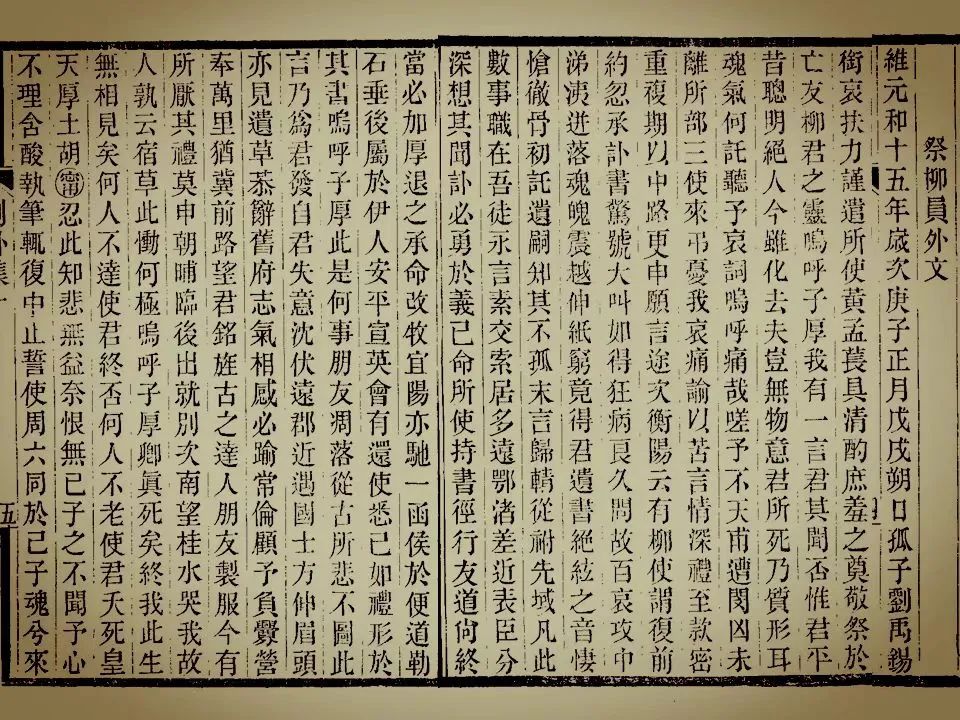 祭柳員外文
維元和十五年歲次庚子正月戊戌朔日孤子劉禹錫
銜哀扶力謹遣所使黃孟萇具清酌庶羞之奠敬祭於
亡友柳君之靈嗚呼子厚我有一言君其聞否惟君平
昔聰明絕人今雖化去夫豈無物意君所死乃質形耳
魂氣何託聽予哀詞嗚呼痛哉嗟予不天甫遭閔凶未
離所部三使來弔憂我哀痛諭以苦言情深禮至款密
重複期以中路更申願言途次衡陽云有柳使謂復前
約忽承訃書驚號大叫如得狂病良久問故百哀攻中
涕洟迸落魂魄震越伸紙窮竟得君遺書絕絃之音悽
愴徹骨初託遺嗣知其不孤末言歸輤從祔先域凡此
數事職在吾徒永言素交索居多遠鄂渚差近表臣分
深想其聞訃必勇於義己命所使持書徑行友道尚終
當必加厚退之承命改牧宜陽亦馳一函侯於便道勒
石垂後屬於伊人安平宣英會有還使悉已如禮形於
其書嗚呼子厚此是何事朋友凋落從古所悲不圖此
言乃爲君發自君失意沈伏遠郡近遇國士方伸眉頭
亦見遺草恭辭舊府志氣相感必踰常倫顧予負釁營
奉萬里猶冀前路望君銘旌古之達人朋友製服今有
所厭其禮莫申朝晡臨後出就別次南望桂水哭我故
人孰云宿草此慟何極嗚呼子厚卿眞死矣終我此生
無相見矣何人不達使君終否何人不老使君夭死皇
天厚土胡甯忍此知悲無益奈恨無已子之不聞予心
不理含酸執筆輒復中止誓使周六同於己子魂兮來
五